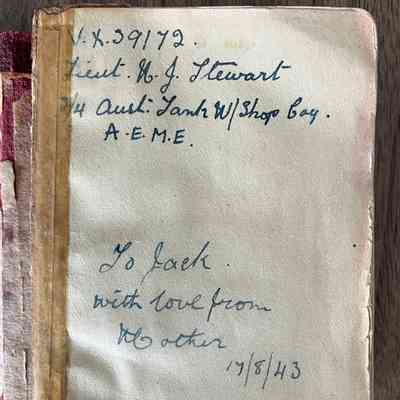 V.X.39172.
Lieut. N. J. Stewart
2/4 Aust: Tank W/Shop Coy.
A.E.M.E.
To Jack.
with love from
Mother
17/8/43